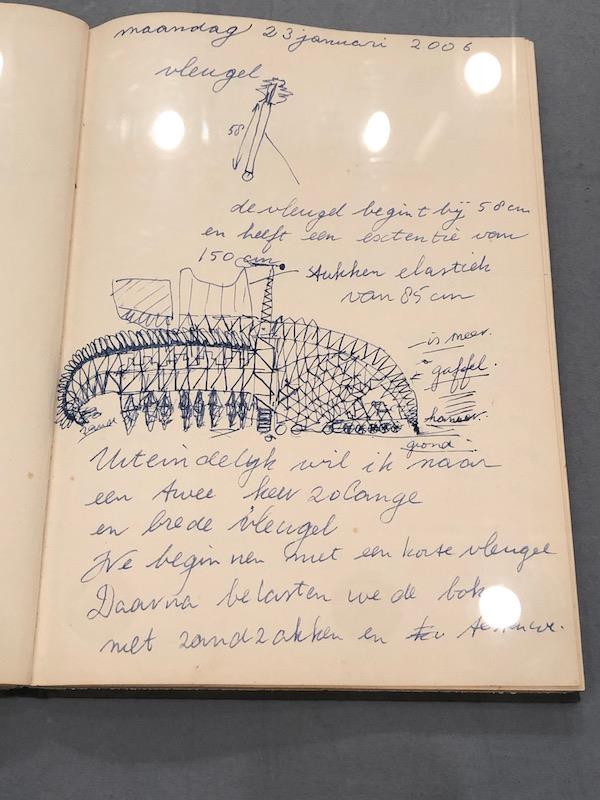 maandag 23 januari 2006
vleugel
58
de vleugel begint bij 58 cm
en heeft een extentie van
150 cm
stukken elastiek
van 85 cm
is meer.
gaffel.
grond.
Uiteindelijk wil ik naar
een twee keer zo lange
en brede vleugel
We beginnen met een korte vleugel
Daarna belasten we de bok
met zandzakken en